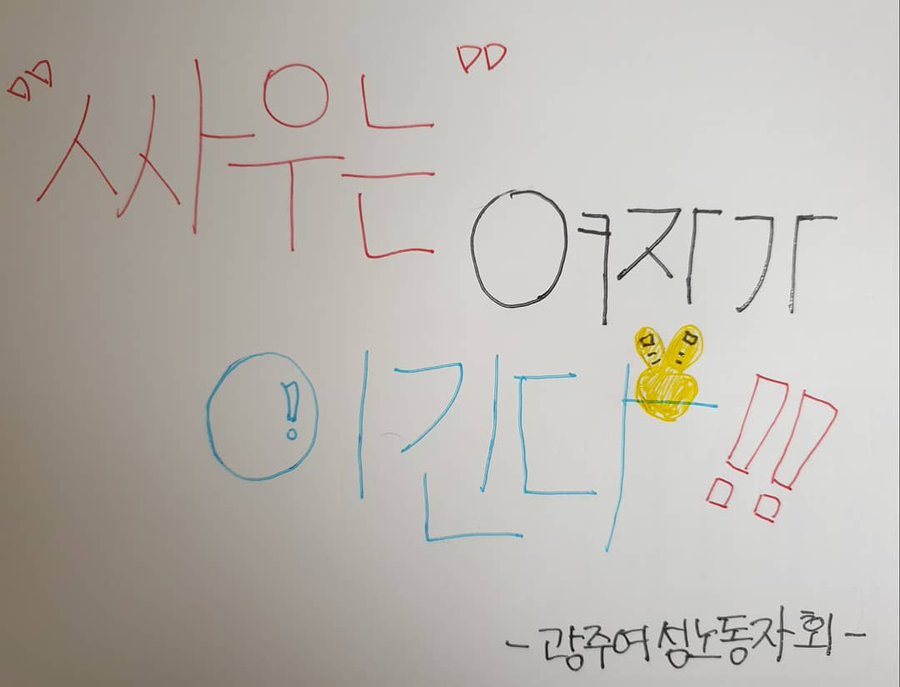 "싸우는"
여자가
이긴다!!
-광주여성노동자회-